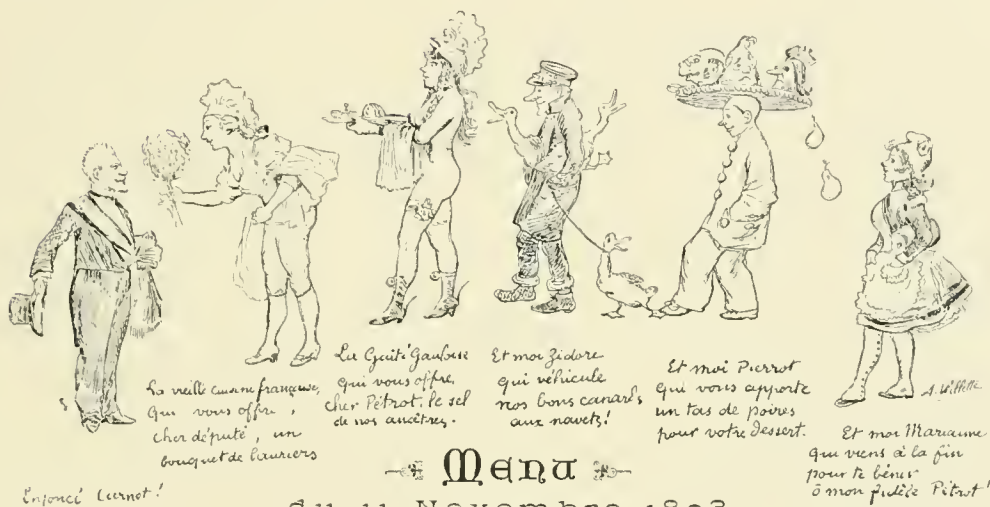 La vieille cuisine française,
qui vous offre,
cher député, un
bouquet de lauriers
La Gaité Gauloise
qui vous offre,
cher Pétrot, le sel
de nos ancêtres.
Et moi Zidore
qui véhicule
nos bons canards
aux navets!
Et moi Pierrot
qui vous apporte
un tas de poires
pour votre dessert.
A. Willette
Et moi Marianne
qui viens à la fin
pour te bénir
ô mon fidèle Pétrot!
Enfoncé Carnot!
Menu
du 11 Novembre 1893